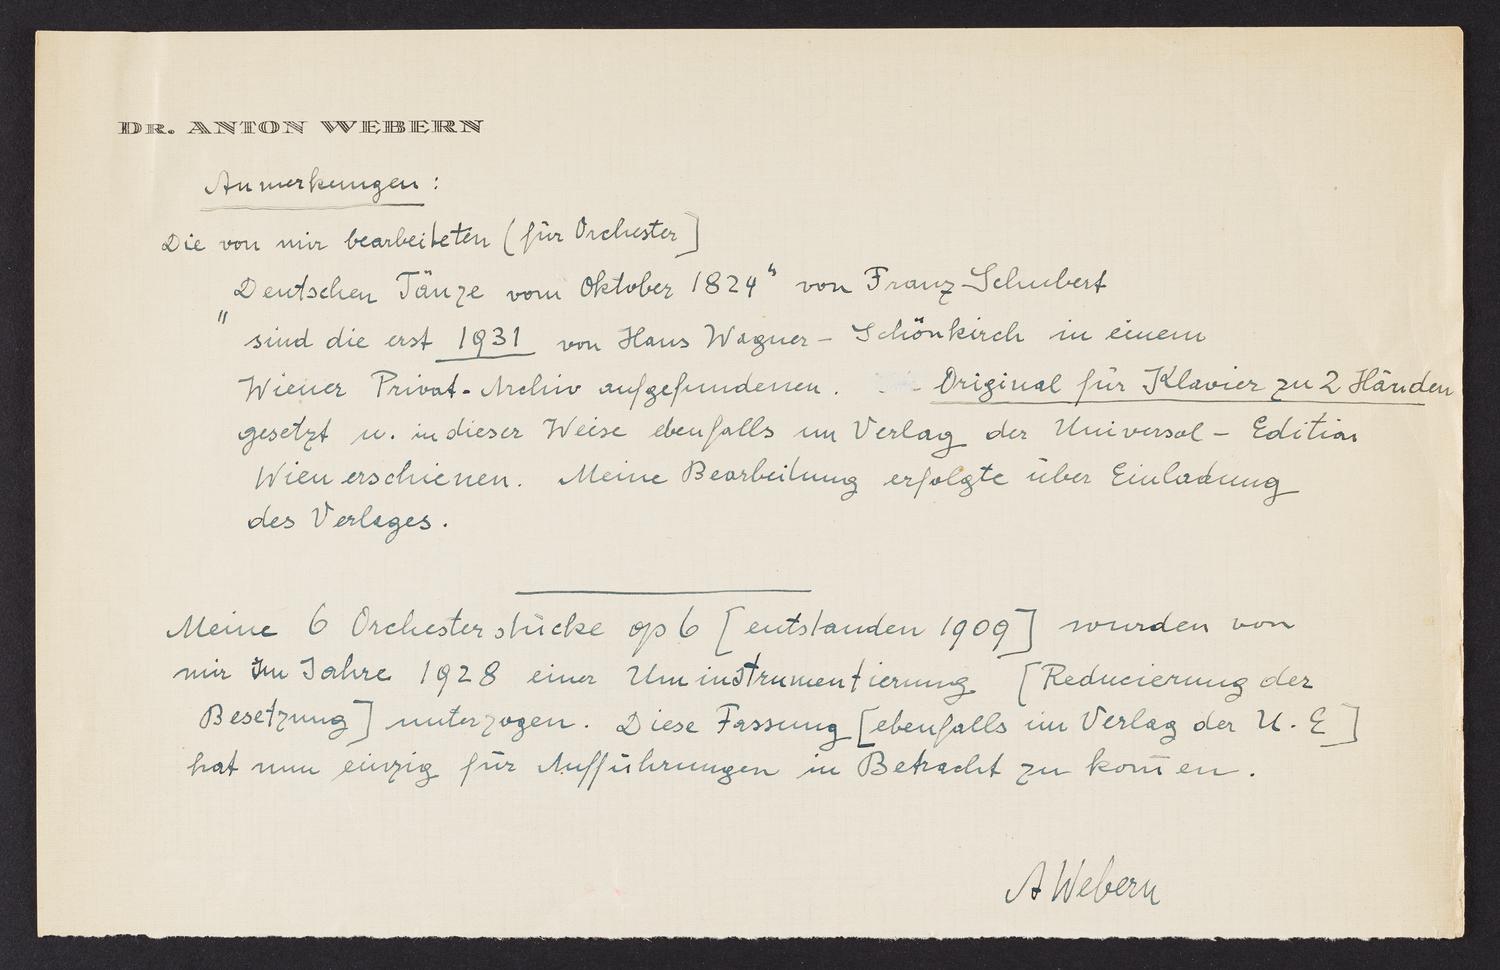 DR. ANTON WEBERN
Anmerkungen:
Die von mir bearbeiteten (für Orchester]
"Deutschen Tänze vom Oktober 1824" von Franz Schubert
sind die erst 1931 von Hans Wagner-Schönkirch in einem
Wiener Privat-Archiv aufgefundenen. - Original für Klavier zu 2 Händen
gesetzt u. in dieser Weise ebenfalls im Verlag der Universal-Edition
Wien erschienen. Meine Bearbeitung erfolgte über Einladung
des Verlages.
Meine 6 Orchesterstücke op 6 [entstanden 1909] wurden von
mir im Jahre 1928 einer Uminstrumentierung [Reducierung der
Besetzung] unterzogen. Diese Fassung [ebenfalls im Verlag der U. E]
hat nun einzig für Aufführungen in Betracht zu kom̄en.
A Webern